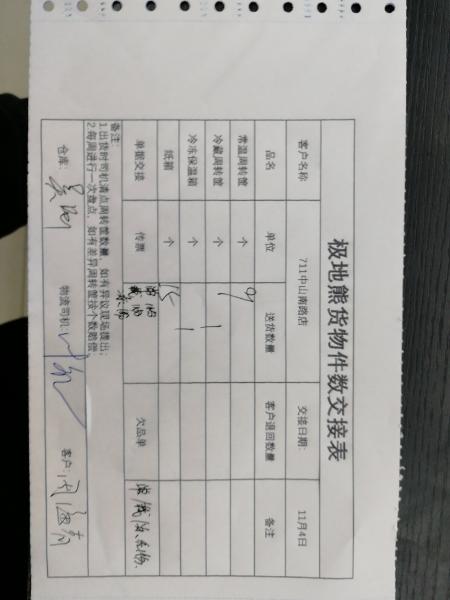 极地熊货物件数交接表
客户名称 711中山南路店 交接日期: 11月4日
品名 单位 送货数量 客户退回数量 备注
常温周转筐 个 9
冷藏周转筐 个 1
冷冻保温箱 个 1
纸箱 个
单据交接 传票 欠品单
备注:
1.出货时司机清点周转筐数量,如有异议现场提出;
2.每周进行一次盘点,如有差异周转筐按个数赔偿;
仓库: 物流司机: 客户: